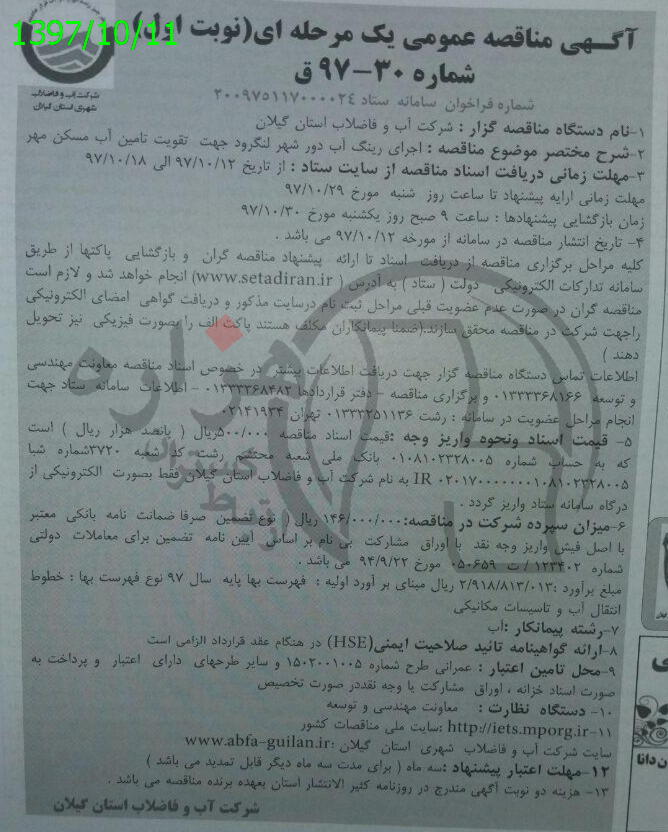 1397/10/11
آگهی مناقصه عمومی یک مرحله ای(نوبت اول)
شماره ۳۰-۹۷ ق
شرکت آب و فاضلاب
شهری استان گیلان
شماره فراخوان سامانه ستاد ۲۰۰۹۷۵۱۱۷۰۰۰۰۲۴
۱-نام دستگاه مناقصه گزار : شرکت آب و فاضلاب استان گیلان
۲-شرح مختصر موضوع مناقصه : اجرای رینگ آب دور شهر لنگرود جهت تقویت تامین آب مسکن مهر
۳-مهلت زمانی دریافت اسناد مناقصه از سایت ستاد : از تاریخ ۹۷/۱۰/۱۲ الی ۹۷/۱۰/۱۸
مهلت زمانی ارایه پیشنهاد تا ساعت روز شنبه مورخ ۹۷/۱۰/۲۹
زمان بازگشایی پیشنهادها : ساعت ۹ صبح روز یکشنبه مورخ ۹۷/۱۰/۳۰
۴- تاریخ انتشار مناقصه در سامانه از مورخه ۹۷/۱۰/۱۲ می باشد .
کلیه مراحل برگزاری مناقصه از دریافت اسناد تا ارائه پیشنهاد مناقصه گران و بازگشایی پاکتها از طریق
سامانه تدارکات الکترونیکی دولت ( ستاد ) به آدرس ( www.setadiran.ir) انجام خواهد شد و لازم است
مناقصه گران در صورت عدم عضویت قبلی مراحل ثبت نام درسایت مذکور و دریافت گواهی امضای الکترونیکی
راجهت شرکت در مناقصه محقق سازند.(ضمنا پیمانکاران مکلف هستند پاکت الف را بصورت فیزیکی نیز تحویل
دهند )
اطلاعات تماس دستگاه مناقصه گزار جهت دریافت اطلاعات بیشتر در خصوص اسناد مناقصه معاونت مهندسی
و توسعه ۰۱۳۳۳۳۶۸۱۶۶ و برگزاری مناقصه - دفتر قراردادها ۰۱۳۳۳۳۶۸۴۸۲ - اطلاعات سامانه ستاد جهت
انجام مراحل عضویت در سامانه : رشت ۰۱۳۳۳۲۵۱۱۳۶ تهران ۰۲۱۴۱۹۳۴
۵- قیمت اسناد ونحوه واریز وجه :قیمت اسناد مناقصه ۵۰۰/۰۰۰ریال ( پانصد هزار ریال ) است
که به حساب شماره ۰۱۰۸۱۰۲۳۲۸۰۰۵ بانک ملی شعبه محتشم رشت کد شعبه ۳۷۲۰شماره شبا
IR ۰۲۰۱۷۰۰۰۰۰۰۰۱۰۸۱۰۲۳۲۸۰۰۵ به نام شرکت آب و فاضلاب استان گیلان فقط بصورت الکترونیکی از
درگاه سامانه ستاد واریز گردد .
۶-میزان سپرده شرکت در مناقصه: ۱۴۶/۰۰۰/۰۰۰ ریال ( نوع تضمین صرفا ضمانت نامه بانکی معتبر
یا اصل فیش واریز وجه نقد یا اوراق مشارکت بی نام بر اساس آیین نامه تضمین برای معاملات دولتی
شماره ۱۲۳۴۰۲ / ت ۰۵۰۶۵۹ مورخ ۹۴/۹/۲۲ می باشد .
مبلغ برآورد :۲/۹۱۸/۸۱۳/۰۱۳ ریال مبنای بر آورد اولیه : فهرست بها پایه سال ۹۷ نوع فهرست بها : خطوط
انتقال آب و تاسیسات مکانیکی
۷-رشته پیمانکار :آب
۸-ارائه گواهینامه تائید صلاحیت ایمنی(HSE) در هنگام عقد قرارداد الزامی است
۹-محل تامین اعتبار : عمرانی طرح شماره ۱۵۰۲۰۰۱۰۰۵ و سایر طرحهای دارای اعتبار و پرداخت به
صورت اسناد خزانه ، اوراق مشارکت یا وجه نقددر صورت تخصیص
۱۰- دستگاه نظارت : معاونت مهندسی و توسعه
۱۱-http://iets.mporg.ir :سایت ملی مناقصات کشور
سایت شرکت آب و فاضلاب شهری استان گیلان :www.abfa-guilan.ir
۱۲-مهلت اعتبار پیشنهاد :سه ماه ( برای مدت سه ماه دیگر قابل تمدید می باشد )
۱۳- هزینه دو نوبت آگهی مندرج در روزنامه کثیر الانتشار استان بعهده برنده مناقصه می باشد .
شرکت آب و فاضلاب استان گیلان